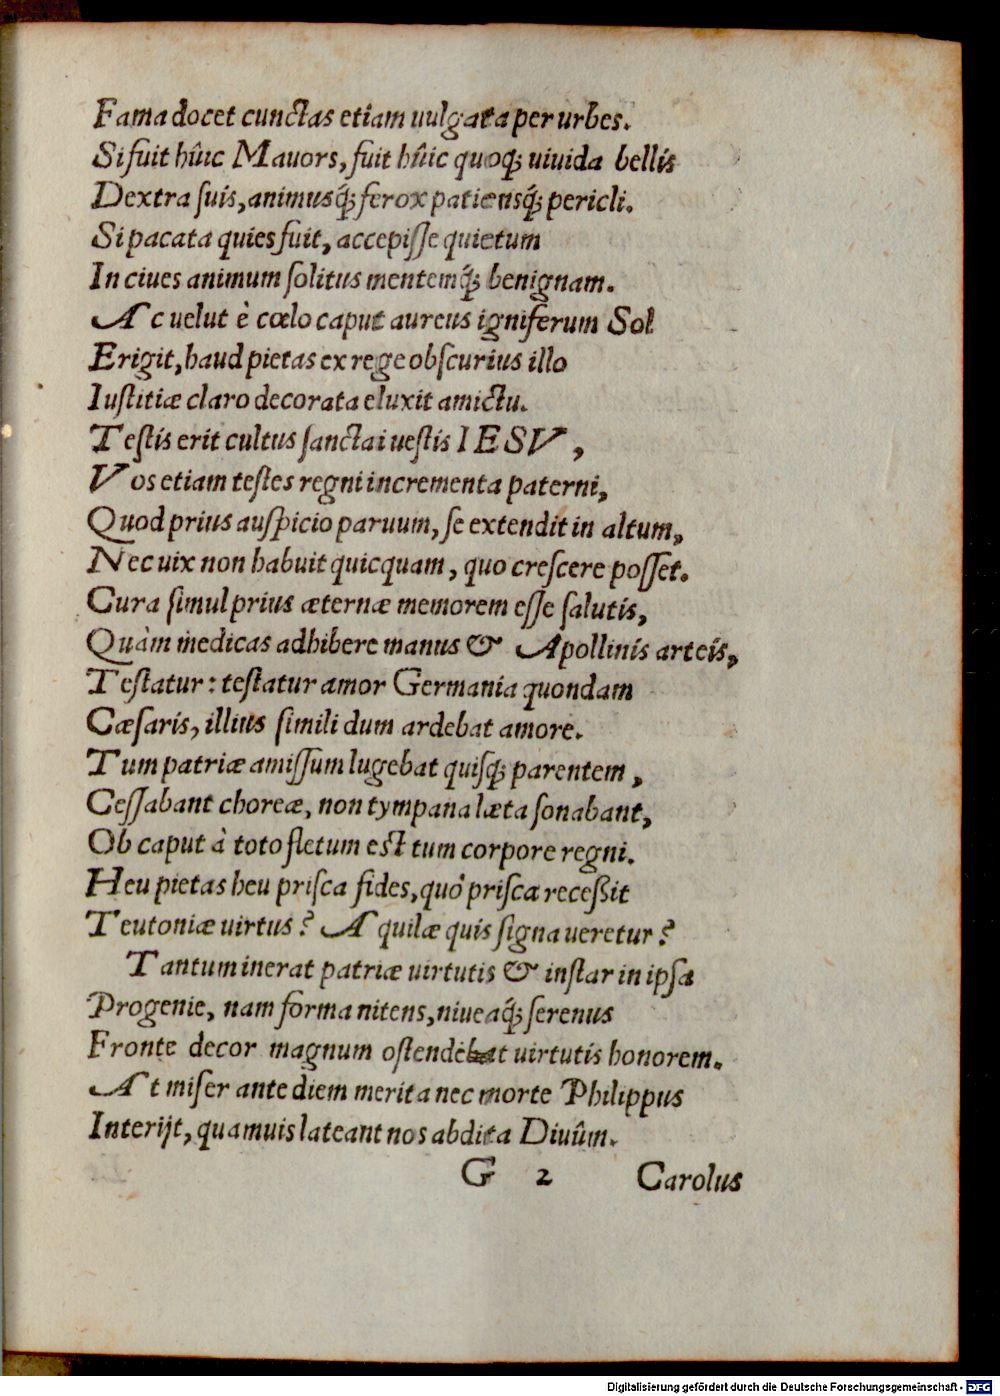 Fama docet cunctas etiam uulgata per urbes.
Si fuit hûic Mauors, fuit hûic quoq; uiuida bellis
Dextra suis, animusq́; ferox patiensq́; pericli.
Si pacata quies fuit, accepisse quietum
In ciues animum solitus mentemq́; benignam.
Ac uelut è cœlo caput aureus igniferum Sol
Erigit, haud pietas ex rege obscurius illo
Iustitiæ claro decorata eluxit amictu.
Testis erit cultus sanctai uestis IESV,
Vos etiam testes regni incrementa paterni,
Quod prius auspicio paruum, se extendit in altum,
Nec uix non habuit quicquam, quo crescere posset.
Cura simul prius æternæ memorem esse salutis,
Quàm medicas adhibere manus & Apollinis arteis,
Testatur: testatur amor Germania quondam
Cæsaris, illius simili dum ardebat amore.
Tum patriæ amissum lugebat quisq; parentem,
Cessabant choreæ, non tympana læta sonabant,
Ob caput à toto fletum est tum corpore regni.
Heu pietas heu prisca fides, quò prisca recessit
Teutoniæ uirtus? Aquilæ quis signa ueretur?
Tantum inerat patriæ uirtutis & instar in ipsa
Progenie, nam forma nitens, niueaq́; serenus
Fronte decor magnum ostendebat uirtutis honorem.
At miser ante diem merita nec morte Philippus
Interijt, quamuis lateant nos abdita Diuûm.
G 2 Carolus
Digitalisierung gefördert durch die Deutsche Forschungsgemeinschaft - DFG